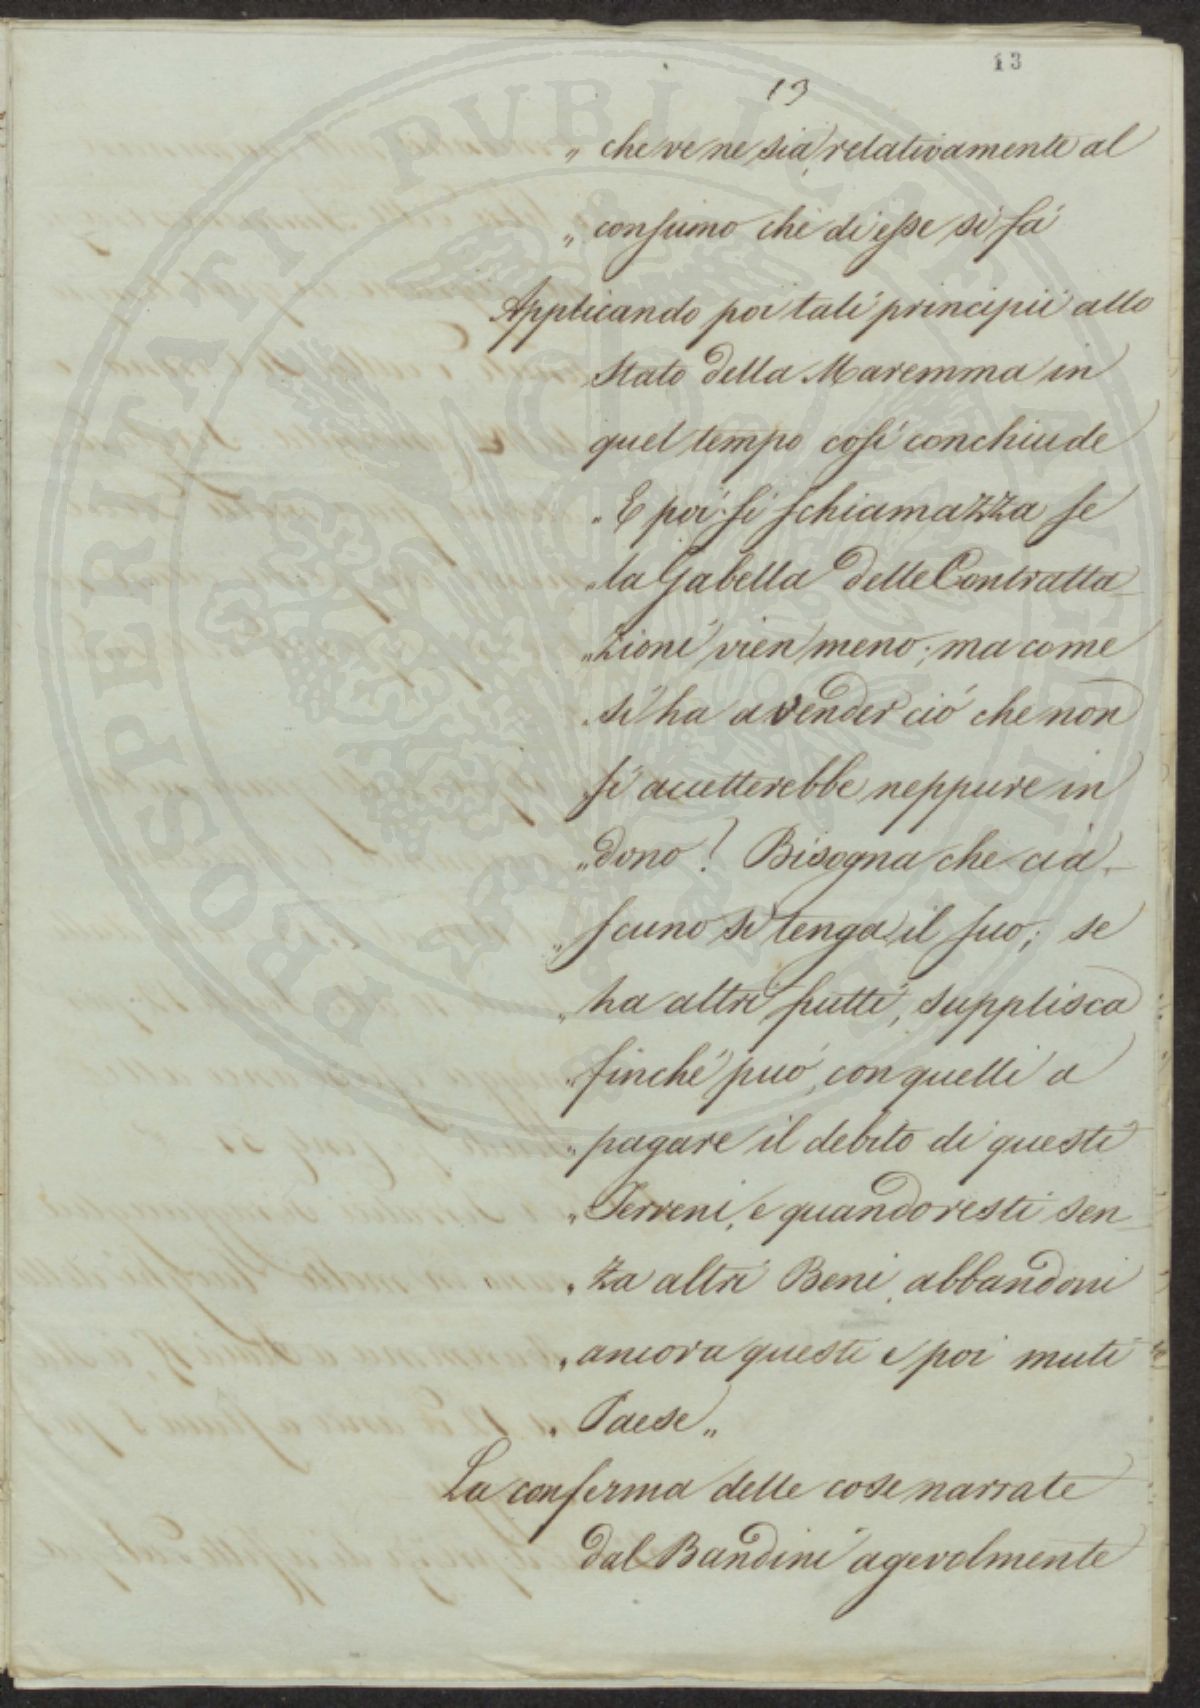 13
13
„ che ve ne sia, relativamente al
„ consumo che di esse si fà
Applicando poi tali principii allo
Stato della Maremma in
quel tempo così conchiude
„ E poi si schiamazza se
„ la Gabella delle Contratta-
„ zioni vien meno; ma come
„ si ha a vender ciò che non
si accetterebbe neppure in
„ dono? Bisogna che cia-
„ scuno si tenga il suo; se
„ ha altri frutti, supplisca
„ finchè può, con quelli a
„ pagare il debito di questi
„ Terreni, e quando resti sen-
„ za altri Beni, abbandoni
„ ancora questi e poi muti
„ Paese „
La conferma delle cose narrate
dal Bandini agevolmente
PROSPERITATI PUBLICAE AUGENDAE